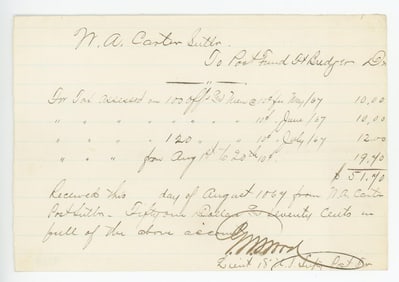 W. A. Carter Sutlr.
To Post Fund Ft Bridger Dr
For Tax assessed on 100 offs & Men @ 10¢ for May/67 10.00
" " " " " " " 10¢ " June/67 10.00
" " " " 120 " " 10¢ " July/67 12.00
" " " from Aug 1st to 20th 10¢. 19.70
$51.70
Received this day of August 1867 from W.A. Carter
Post Sutler. Fifty one Dollars & seventy Cents in
full of the above account
Lieut 18th Inf